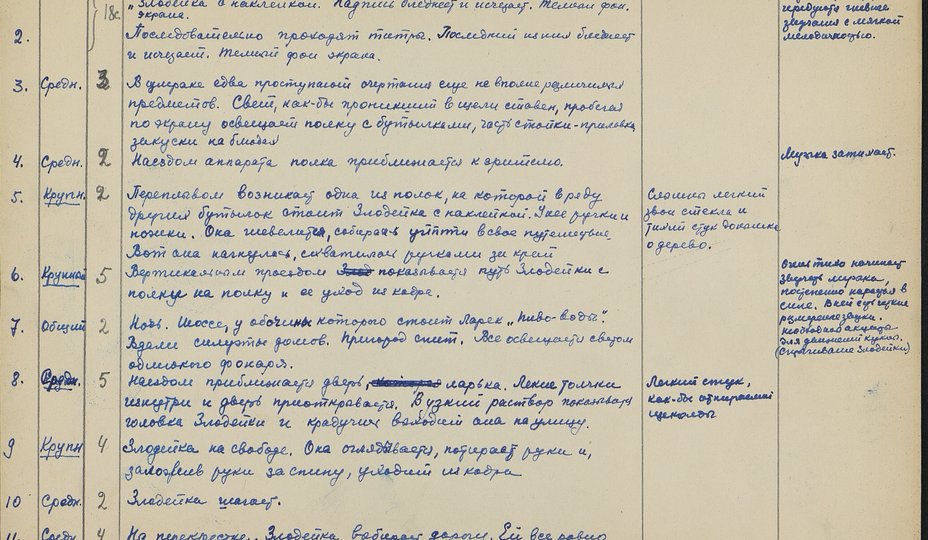 „Злодейка с наклейкой. Надпись бледнеет и исчезает. Темный фон.
экрана.
18с.
чередуются гневное
звучание с мягкой
мелодичностью.
2. Последовательно проходят титры. Последний из них бледнеет
и исчезает. Темный фон экрана.
3. Средн. 3 В сумраке едва проступают очертания еще не вполне различимых
предметов. Свет, как-бы проникший в щели ставен, пробегая
по экрану освещает полку с бутылками, часть стойки-прилавка,
закуски на блюдах
4. Средн. 2 Наездом аппарата полка приближается к зрителю.
Музыка затихает.
5. Крупн. 2 Переплывом возникает одна из полок, на которой в ряду
других бутылок стоит Злодейка с наклейкой. У нее ручки и
ножики. Она шевелится, собираясь уйти в свое путешествие.
Вот она нагнулась, схватилась руками за край
Слышны легкий
звон стекла и
тихий стук донышка
о дерево.
6. Крупной 5 Вертикальным проездом показывается путь Злодейки с
полки на полку и ее уход из кадра.
тихо начинает
звучать музыка,
постепенно нарастая в
силе. В ней есть жуткие
для движений куклы.
(Спрыгивание Злодейки)
7. Общий 2 Ночь. Шоссе, у обочины которого стоит ларек „Пиво-воды".
Вдали силуэты домов. Пригород спит. Все освещается светом
одинокого фонаря.
8. Средн. 5 Наездом приближается дверь, которая ларька. Легкие толчки
изнутри и дверь приоткрывается. В узкий раствор показывается
головка Злодейки и крадучись выходит она на улицу.
Легкий стук,
как-бы отпираемой
щеколды
9 Крупн 4 Злодейка на свободе. Она оглядывается, потирает руки и,
заложив руки за спину, уходит из кадра
10 Средн. 2 Злодейка шагает.
11. Средн 4 На перекрестке. Злодейка выбирает дорогу. Ей все равно